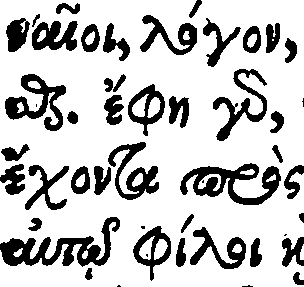 ναῖοι, λόγον,
ἔφη γὰρ,
ἔχοντα πρὸς
αὐτῷ φίλοι